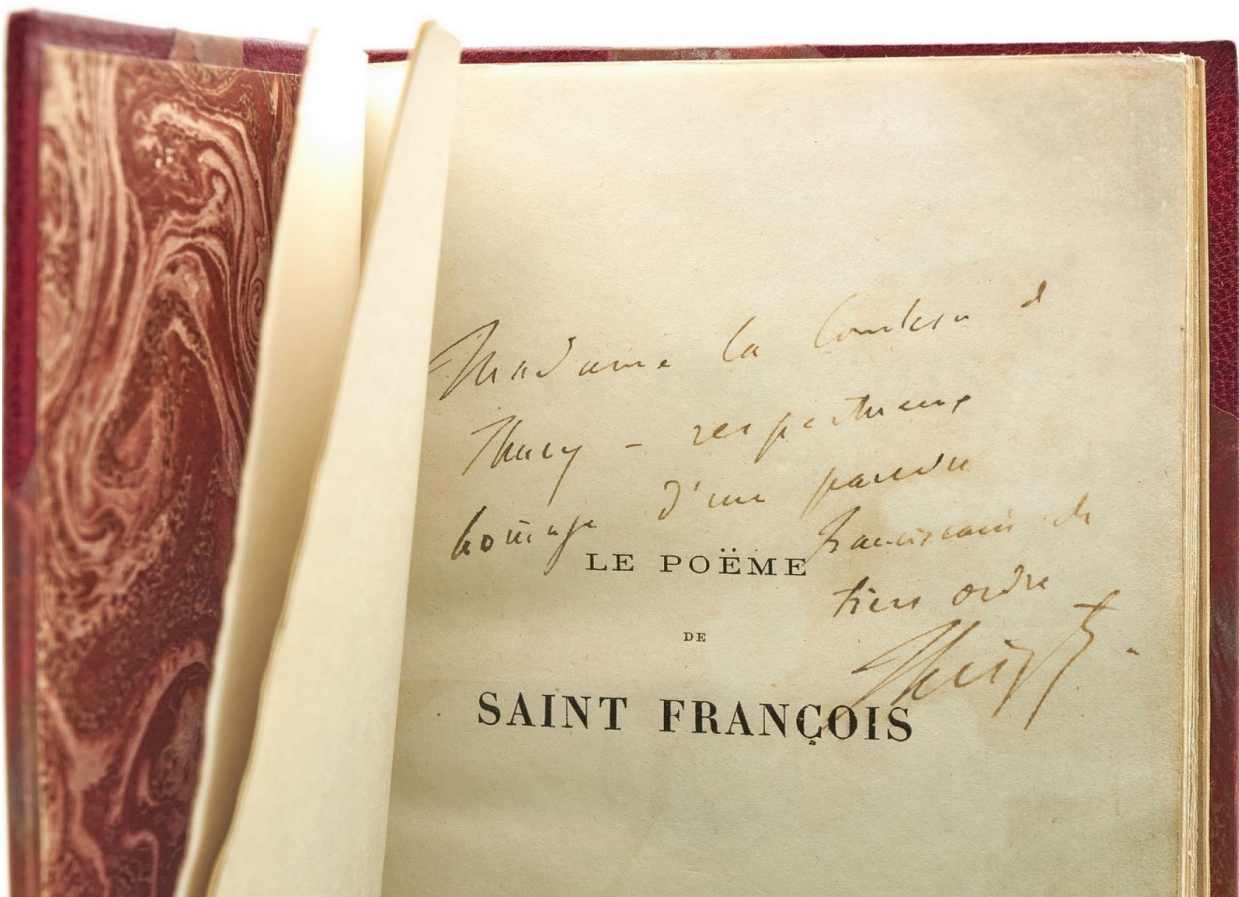 Madame la Comtesse d
Thury – respectueux
homage d'un pauvre
franciscain du
tiers ordre
LE POËME
DE
SAINT FRANÇOIS